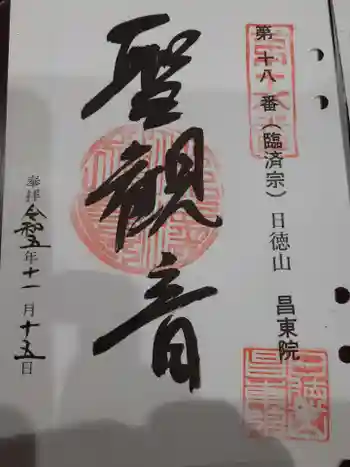 第十八番(臨済宗)日徳山 昌東院
聖観音
奉拝 令和五年十一月十五日